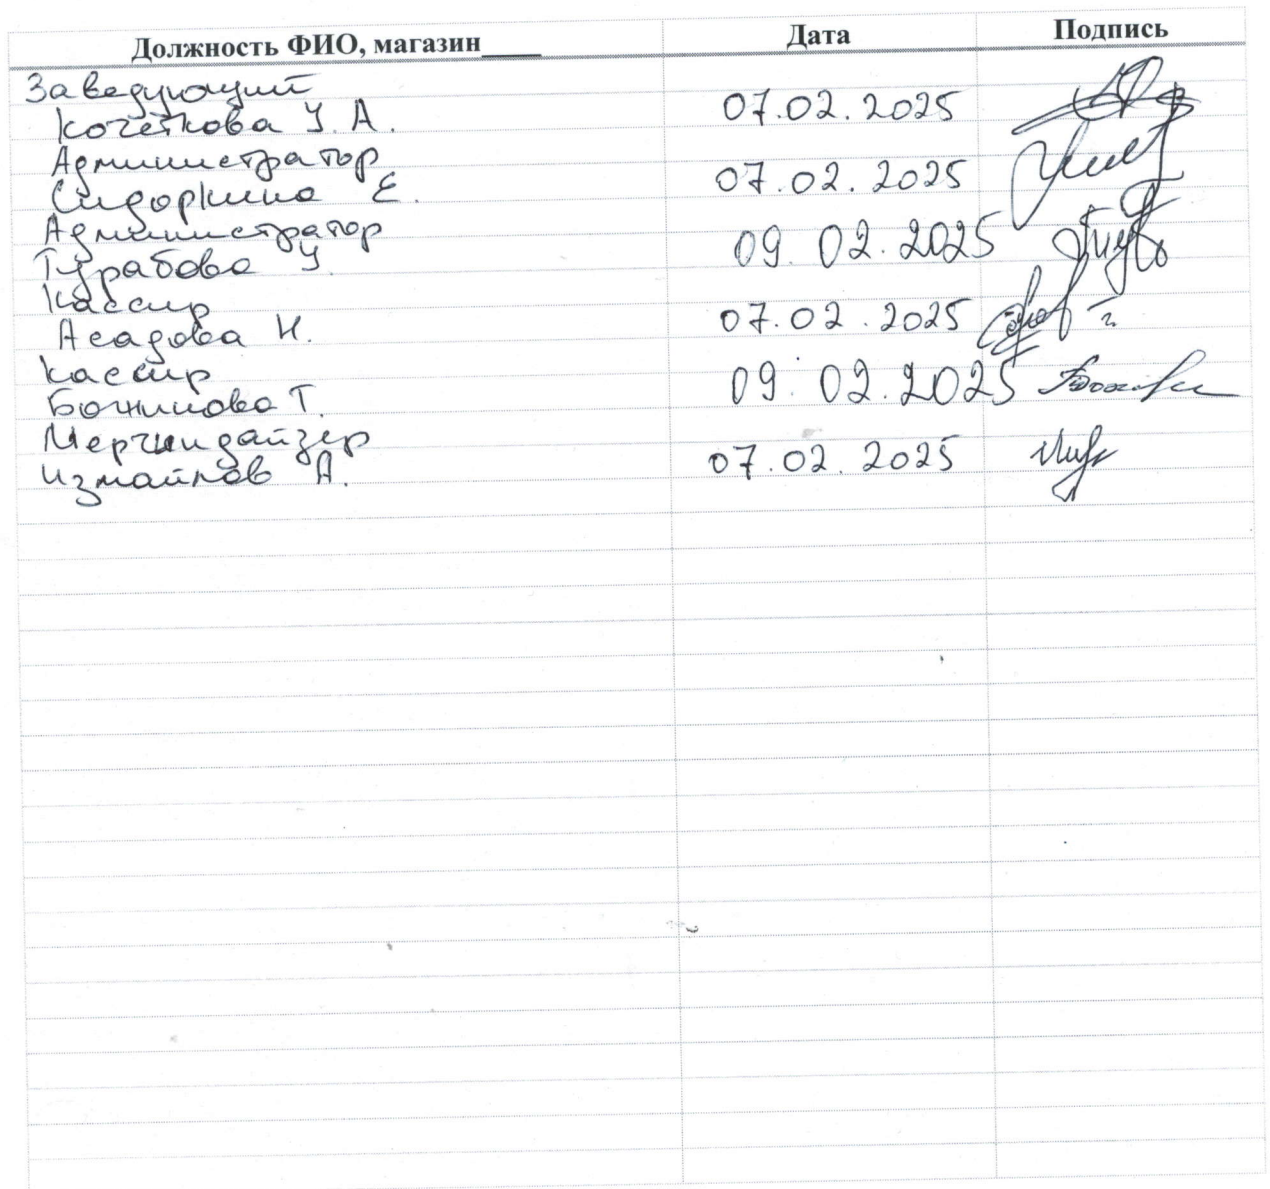 Должность ФИО, магазин____ Дата Подпись
Заведующий
Кочеткова У. А. 07.02.2025
Администратор
Сидоркина Е. 07.02.2025
Администратор
Турабова У. 09.02.2025
Кассир
Асадова Н. 07.02.2025
Кассир
Т. 09.02.2025
Мерчендайзер
Измайлов А. 07.02.2025